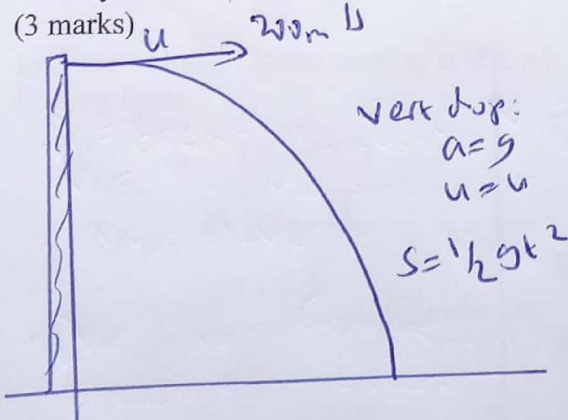 (3 marks)
u 200m/s
vert drop:
a=g
u=u
S=½gt²